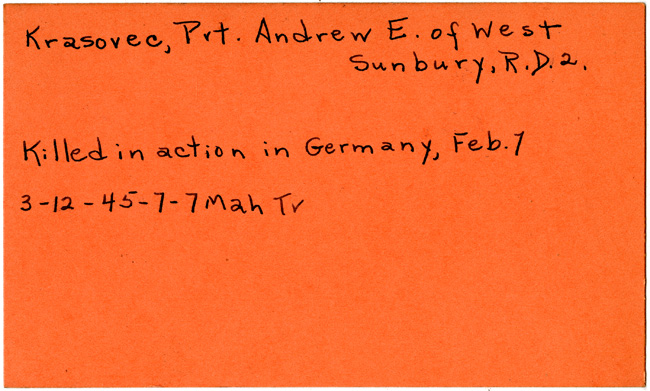 Krasovec, Pvt. Andrew E. of West
Sunbury, R.D. 2.
Killed in action in Germany, Feb. 7
3-12-45-7-7 Mah Tr